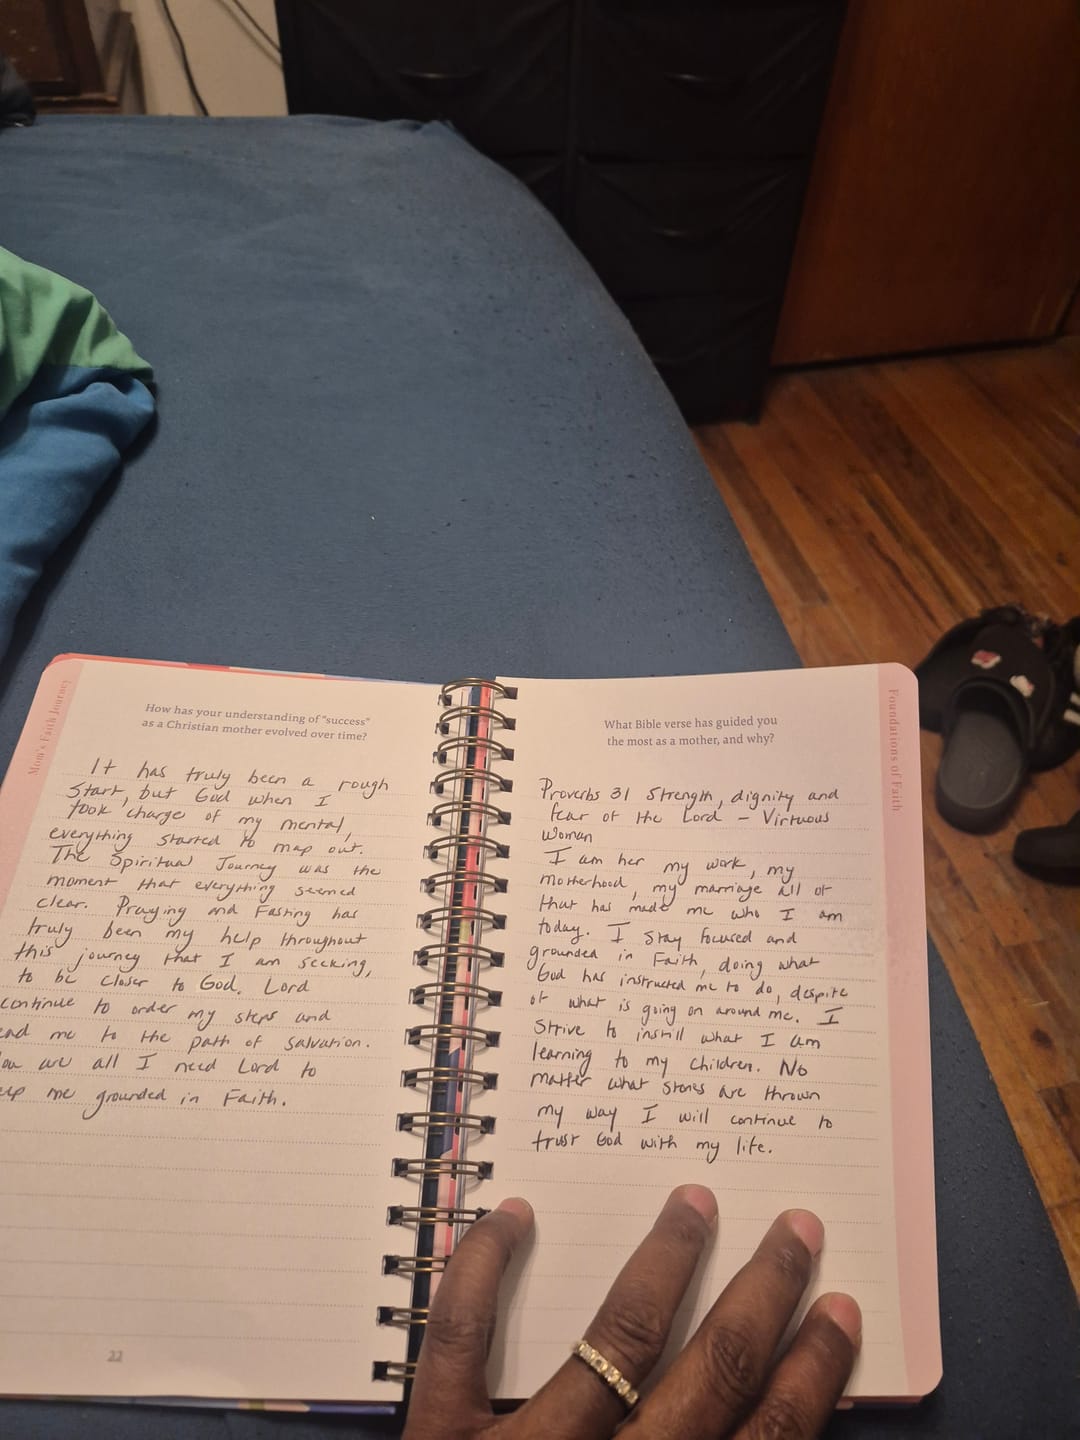 Mom's Faith Journey
How has your understanding of "success"
as a Christian mother evolved over time?
It has truly been a rough
Start, but God when I
took charge of my mental,
everything started to map out.
The Spiritual Journey was the
moment that everything seemed
clear. Praying and Fasting has
truly been my help throughout
this journey that I am seeking,
to be closer to God. Lord
continue to order my steps and
me to the path of salvation.
are all I need Lord to
me grounded in Faith.
22
What Bible verse has guided you
the most as a mother, and why?
Proverbs 31 Strength, dignity and
fear of the Lord - Virtuous
Woman
I am her my work, my
motherhood, my marriage all of
that has made me who I am
today. I stay focused and
grounded in Faith, doing what
God has instructed me to do, despite
of what is going on around me. I
strive to instill what I am
learning to my children. No
matter what stones are thrown
my way I will continue to
trust God with my life.
Foundations of Faith